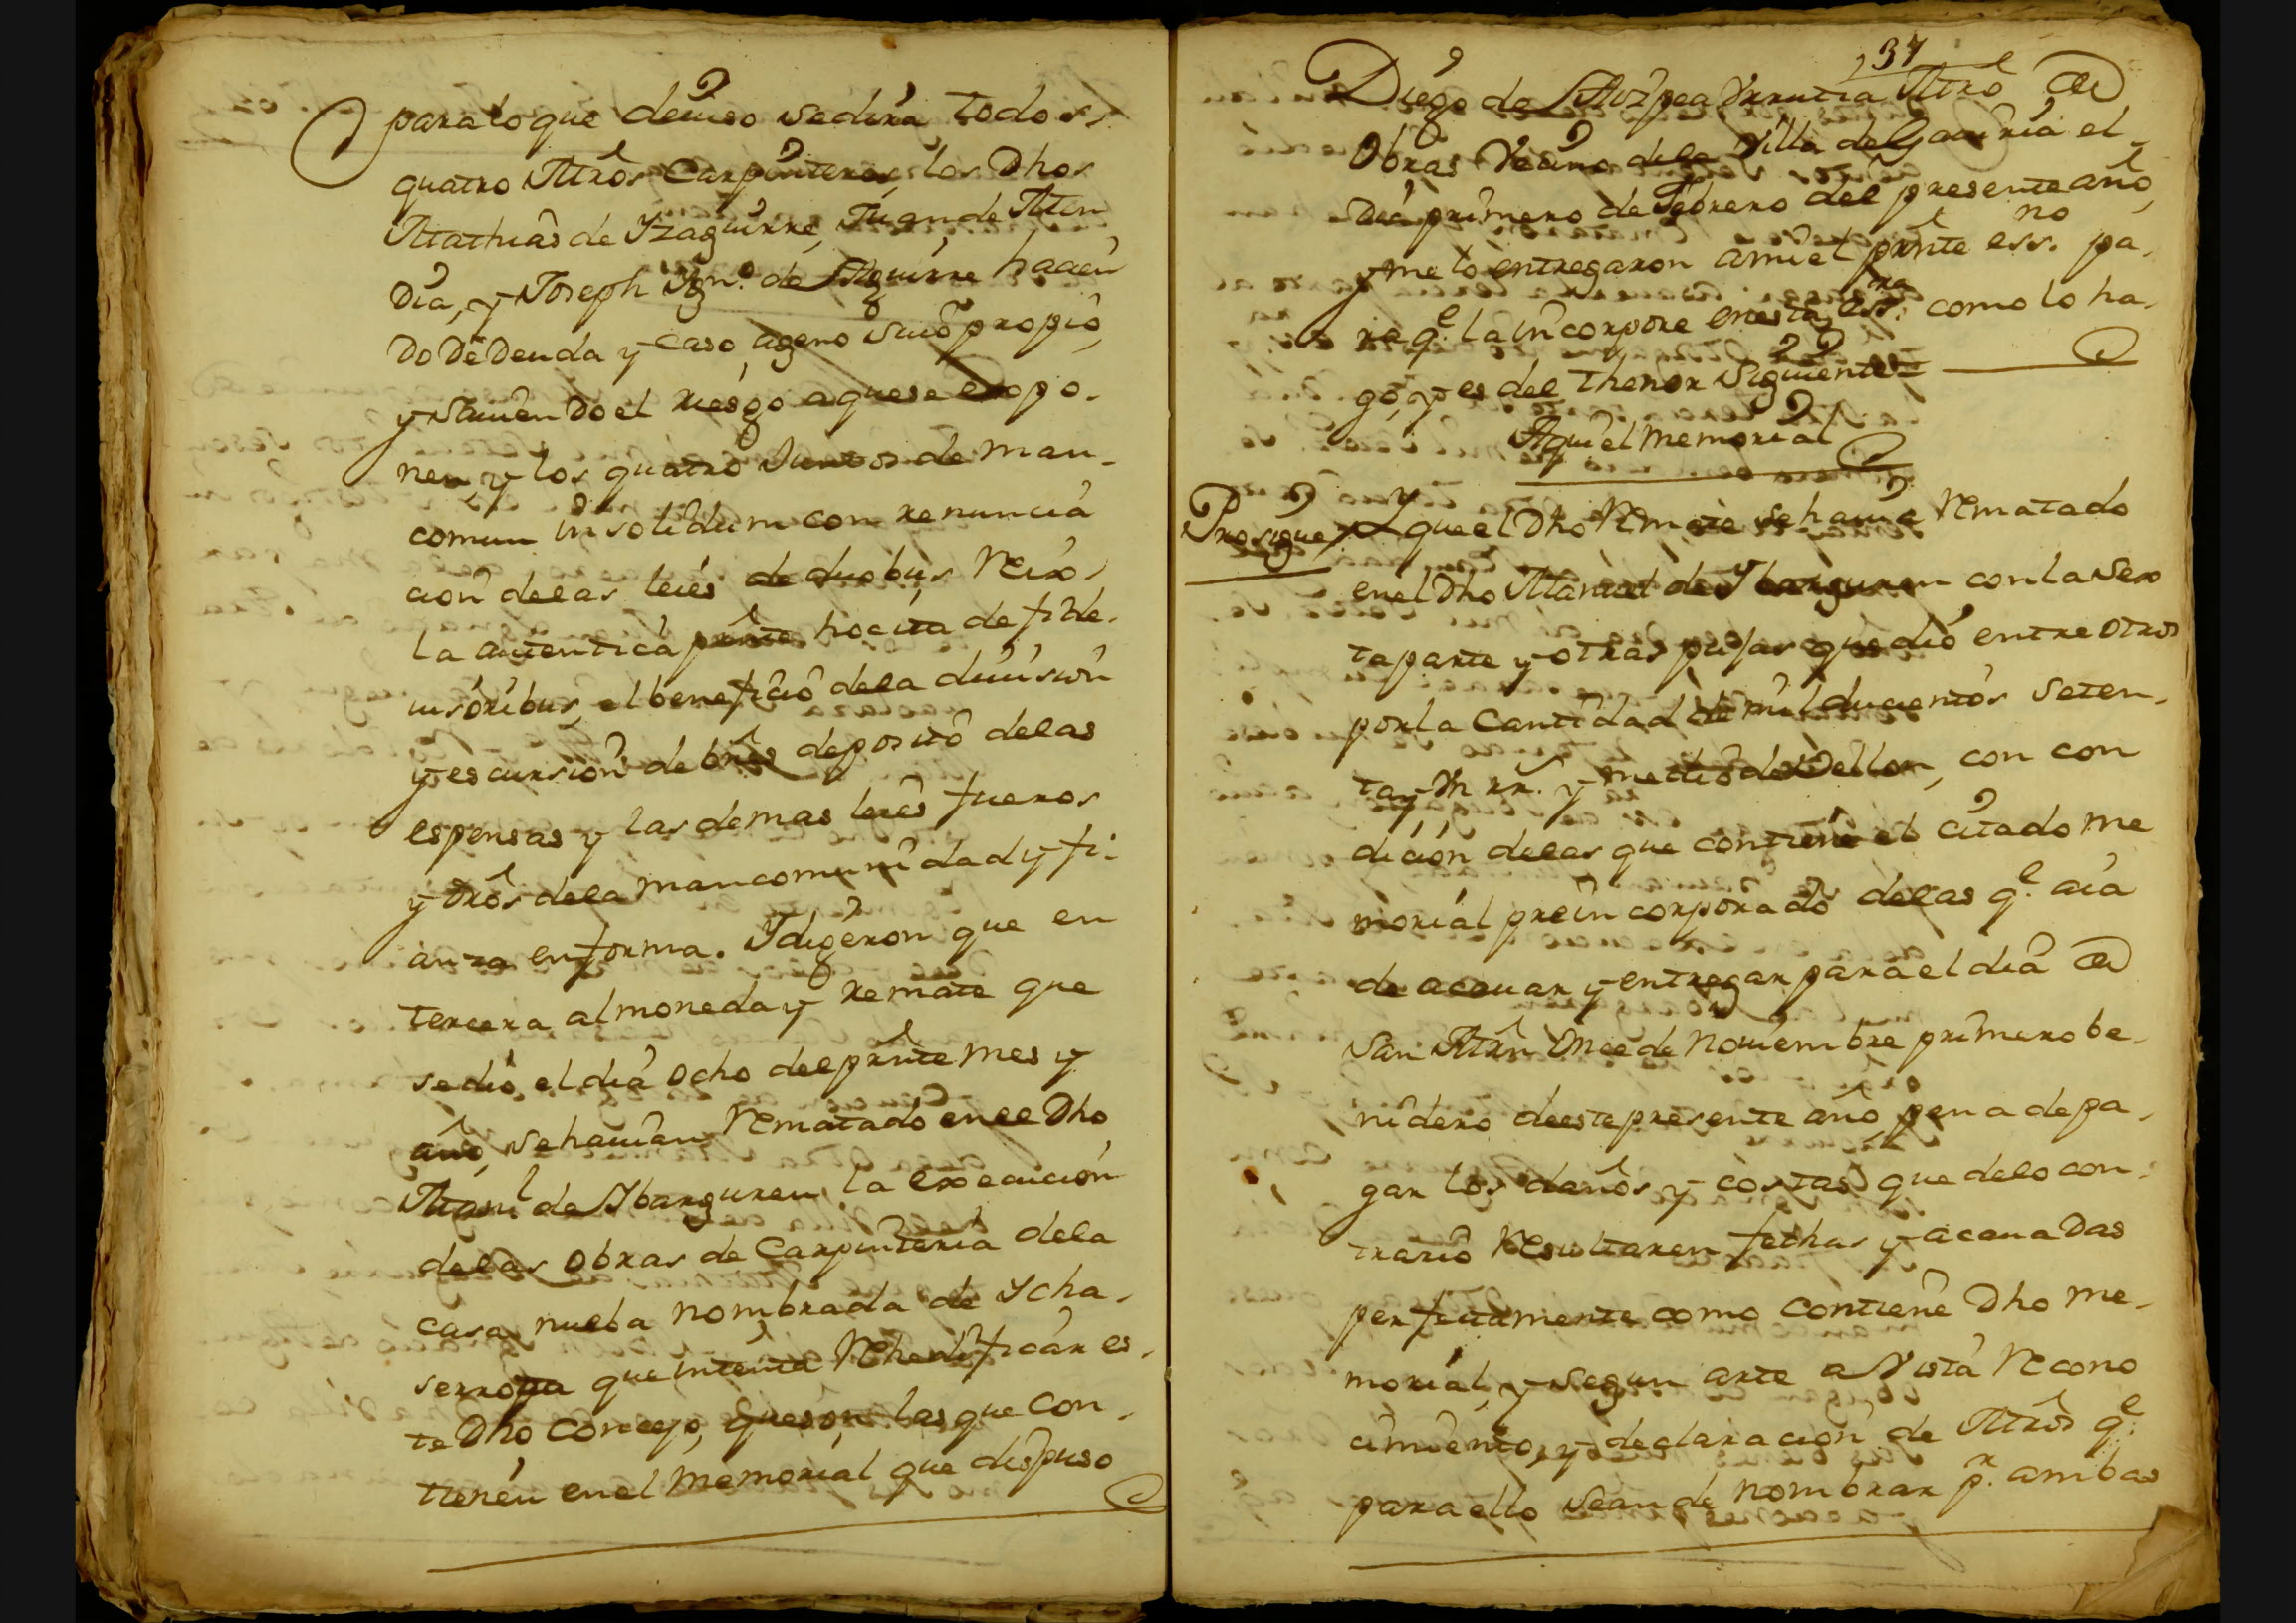 para lo que deiuso sedirá todos,
quatro Mrôs Carpinteros, los Dhos
Mathias de Yzaguirre, Juan de Men
Dia, y Joseph Ygnº. de Aguirre hacen
Do De Deuda y caso ageno suio propio,
y Sauiendo el riesgo a que se expo-
nen, y los quatro Juntos de man-
comun insolidum con renuncia
cion de las leiés de duobus Reix,
la autentica prênte hocita de fide-
iusóribus, el beneficio dela diuision
y escursion de bnês deposito delas
espensas y las demas leiês fueros
y drôs dela mancomunidad y fi-
anza en forma. Y digeron que en
tercera almoneda y remate que
sedió el dia ocho del prênte mes y
año, se hauian Rematado en el Dho
Manl. de Ybarguren, la execucion
delas obras de Carpinteria dela
casa nueba nombrada de Ycha-
serroga que intenta Rehedificar es-
te Dho concejo, que son las que con-
tienen en el memorial que dispuso
37
Diego de Aizpea Vrrutia Mrô de
Obras Vecino dela Villa de Gauiria el
Dia primero de Febrero del presente año,
y me lo entregaron ami el prênte essno. pa-
ra qe. la incorpore en esta essra. como lo ha-
go, y es del thenor Siguiente=
Aqui el memorial
Prosigue Y que el Dho Remate se hauia Rematado
en el Dho Manuel de Ybarguren con la Sex
ta parte y otras pujas que dió entre otros
por la Cantidad de mil ducientos Seten-
ta y Vn rr.s y medio de Vellon, con con
dición delas que contiene el citado me
morial preincorporado delas qe. aia
de acauar y entregar para el dia de
San Mrñ Once de Nouiembre primero be-
nidero deeste presente año, pena de pa-
gar los daños y costas que delo con-
trario Resultaren fechas y acauadas
perfectamente como contiene Dho me-
morial, y segun arte a Vista Recono
cimiento, y declaracion de Mrôs qe.
para ello Sean de nombrar pr. ambas